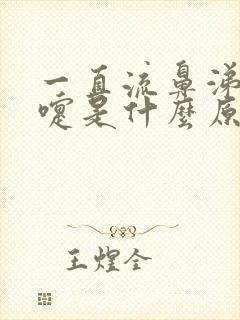 一直流鼻涕
嚏是什麼原
王煌全